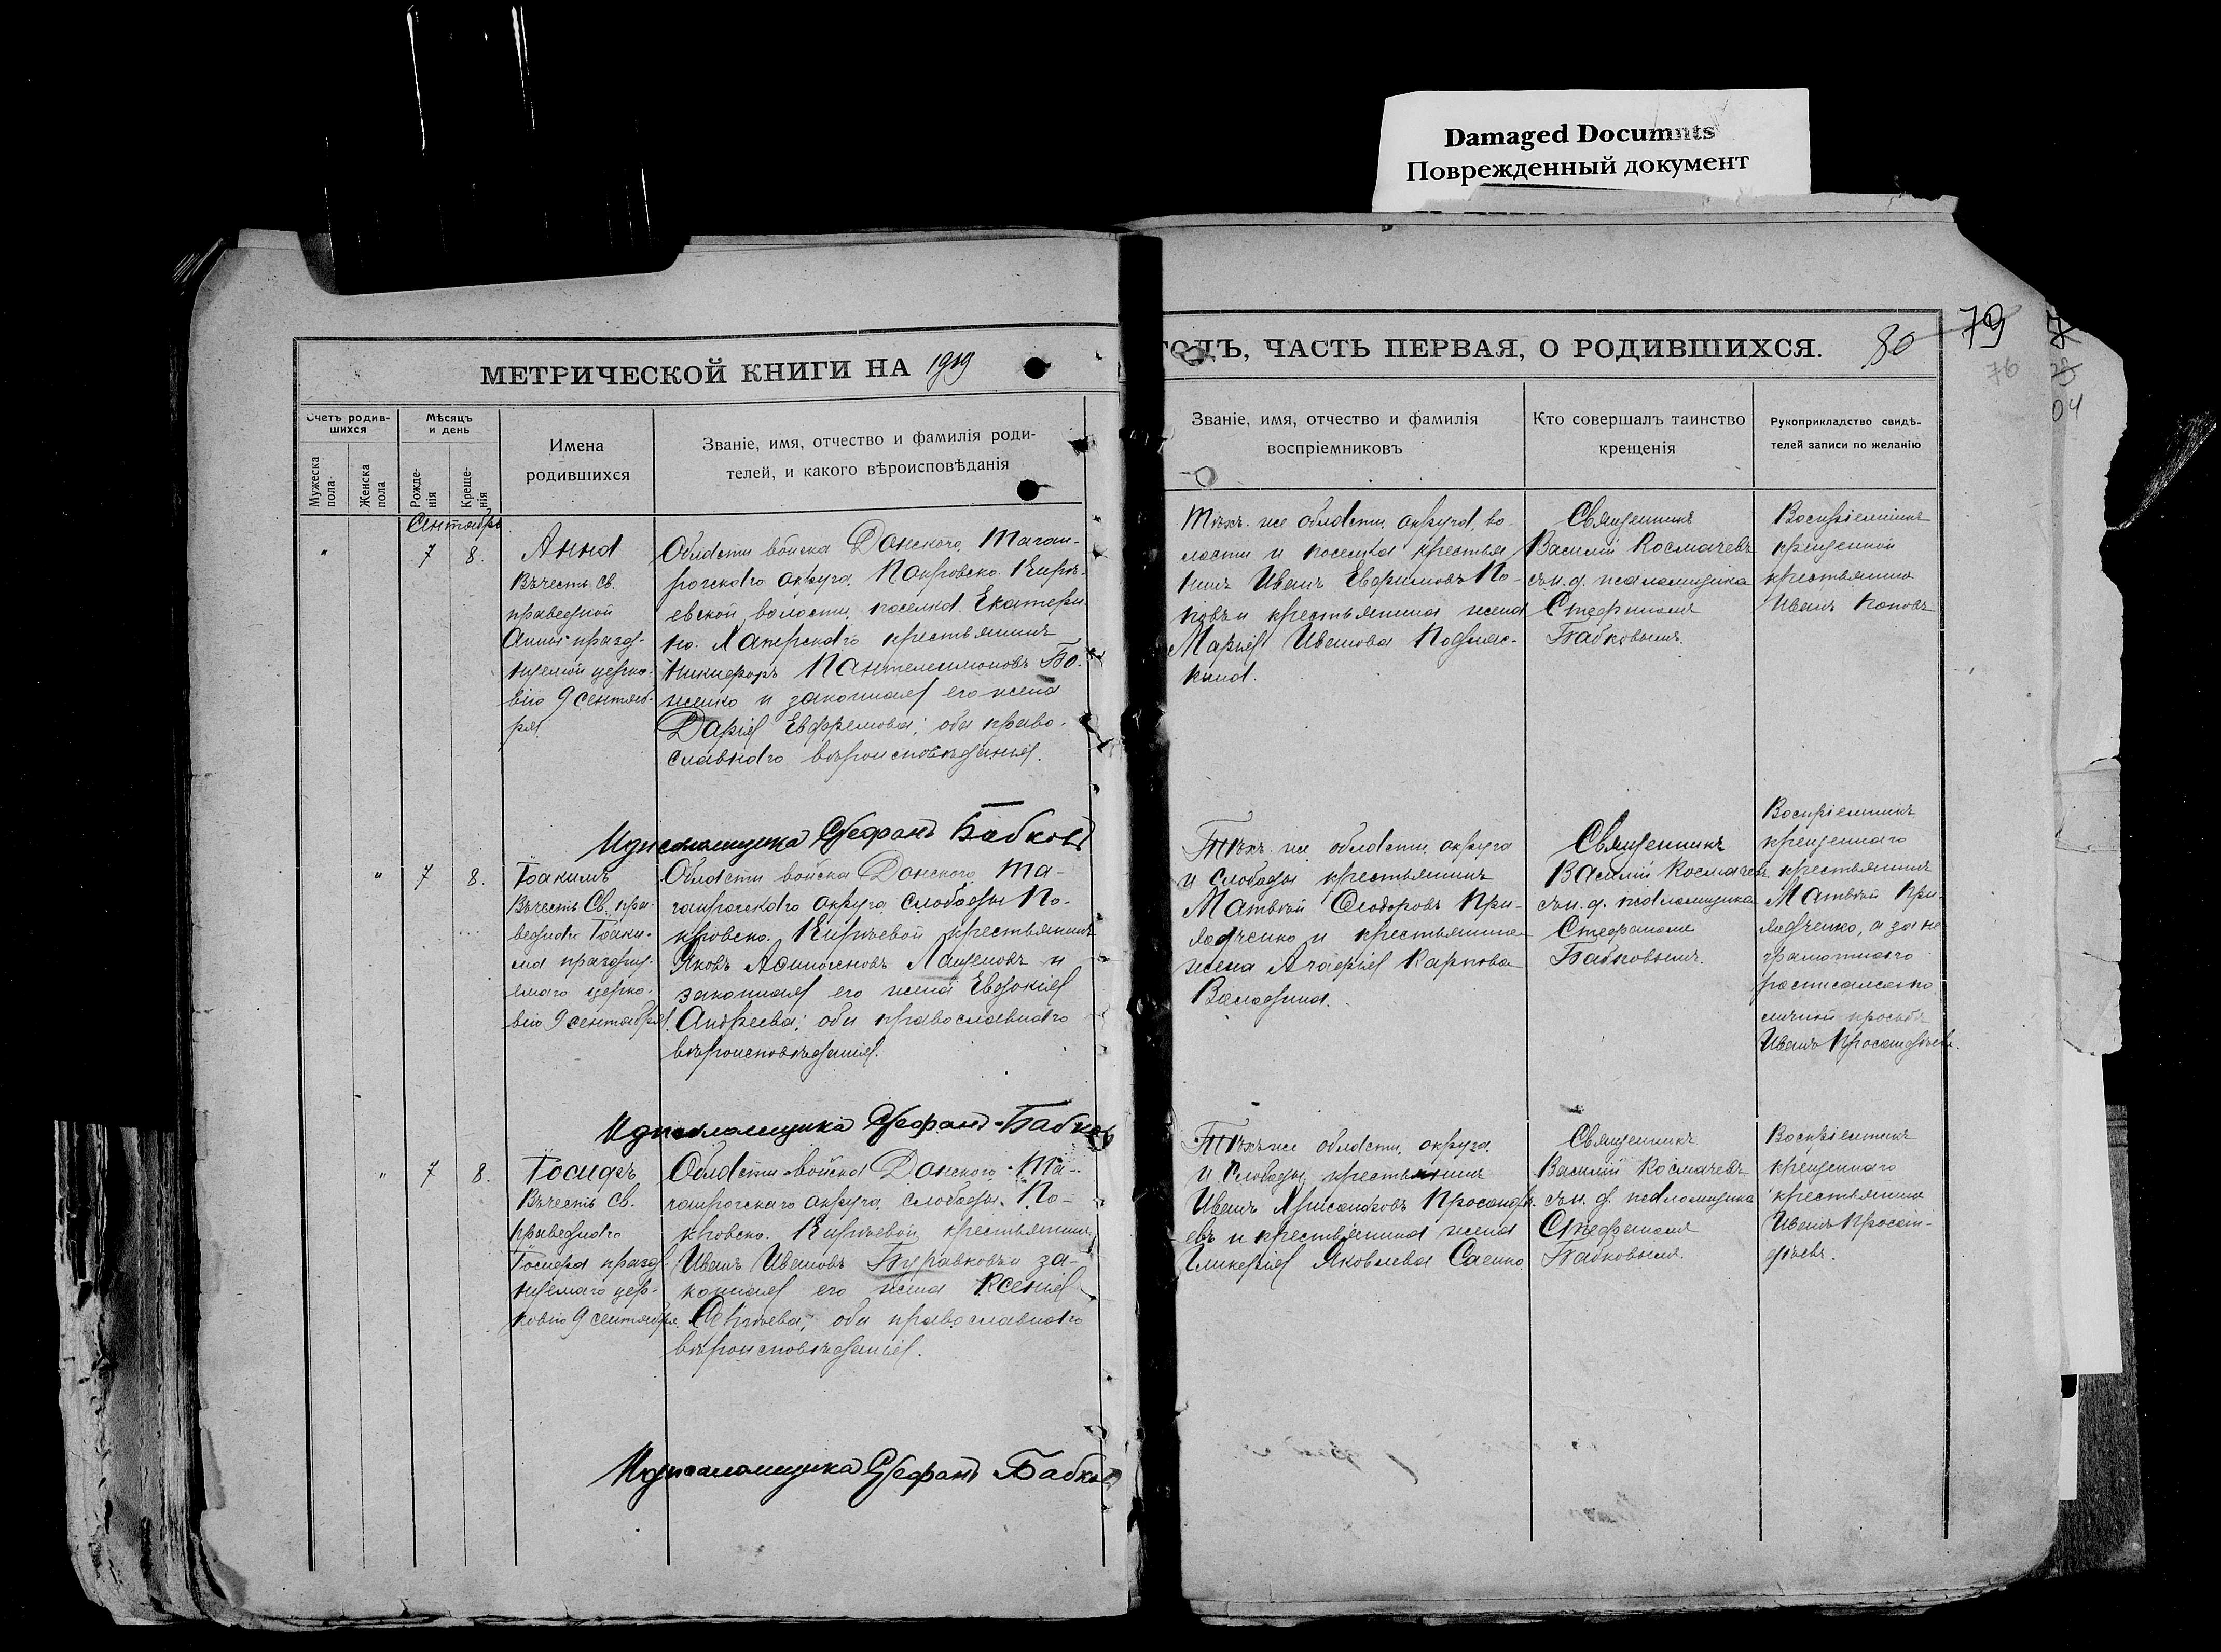 Damaged Documnts
Поврежденный документ
МЕТРИЧЕСКОЙ КНИГИ НА 1919
ГОДЪ, ЧАСТЬ ПЕРВАЯ, О РОДИВШИХСЯ.
80
79
76
04
Счетъ родив-
шихся
Мужеска
пола
Женска
пола
Мѣсяцъ
и день
Рожде-
нія
Креще-
нія
Имена
родившихся
Званіе, имя, отчество и фамилія роди-
телей, и какого вѣроисповѣданія
Званіе, имя, отчество и фамилія
воспріемниковъ
Кто совершалъ таинство
крещенія
Рукоприкладство свидѣ-
телей записи по желанію
Сентябрь
" 7 8.
Анна
Въ честь св.
праведной
Анны празд-
нуемой церко-
вію 9 сентяб-
ря
Области войска Донского, Таган-
рогскаго округа, Покровско-Кирѣ-
евской волости, поселка Екатери-
но-Хаперскаго крестьянинъ
Никифоръ Пантелеимоновъ Бо-
женко и законная его жена
Дарія Евфремова; оба право-
славнаго вѣроисповѣданія.
Тѣхъ-же области, округа, во-
лости и поселка крестья-
нинъ Иванъ Ефримовъ По-
повъ и крестьянина жена
Марія Иванова
Священникъ
Василій Космачевъ
съ и. д. псаломщика
Стефаномъ
Бабковымъ.
Воспріемникъ
крещенной
крестьянинъ
Иванъ Поповъ
И д псаломщика Стефанъ Бабковъ
" 7 8.
Іоакимъ
Въ честь Св. пра-
веднаго Іоаки-
ма праздну-
емаго церко-
вію 9 сентября
Области войска Донского, Та-
ганрогскаго округа, слободы По-
кровско-Кирѣевой крестьянинъ
Яковъ Афиногеновъ Лащеновъ и
законная его жена Евдокія
Андреева; оба православнаго
вѣроисповѣданія.
Тѣхъ-же области, округа
и слободы крестьянинъ
Матвѣй Ѳеодоровъ При-
ладченко и крестьянина
жена Агафія Карпова
Володина.
Священникъ
Василій Космачевъ
съ и. д. псаломщика
Стефаномъ
Бабковымъ.
Воспріемникъ
крещеннаго
крестьянинъ
Матвѣй При-
ладченко, а за не
грамотнаго
росписался по
личной просьбѣ
Иванъ Просандѣевъ.
И д псаломщика Стефанъ Бабковъ
" 7 8.
Іосифъ
Въ честь св.
праведнаго
Іосифа празд-
нуемаго цер-
ковію 9 сентября.
Области войска Донского, Та-
ганрогскаго округа, слободы По-
кровско-Кирѣевой крестьянинъ
Иванъ Ивановъ Буравковъ и за-
конная его жена Ксенія
оба православнаго
вѣроисповѣданія.
Тѣхъ же области, округа
и слободы крестьянинъ
Иванъ Хрисанфовъ Просандѣ-
евъ и крестьянина жена
Гликерія Яковлева Саенко.
Священникъ
Василій Космачевъ
съ и. д. псаломщика
Стефаномъ
Бабковымъ.
Воспріемникъ
крещеннаго
крестьянинъ
Иванъ Просан-
дѣевъ.
И д псаломщика Стефанъ Бабковъ